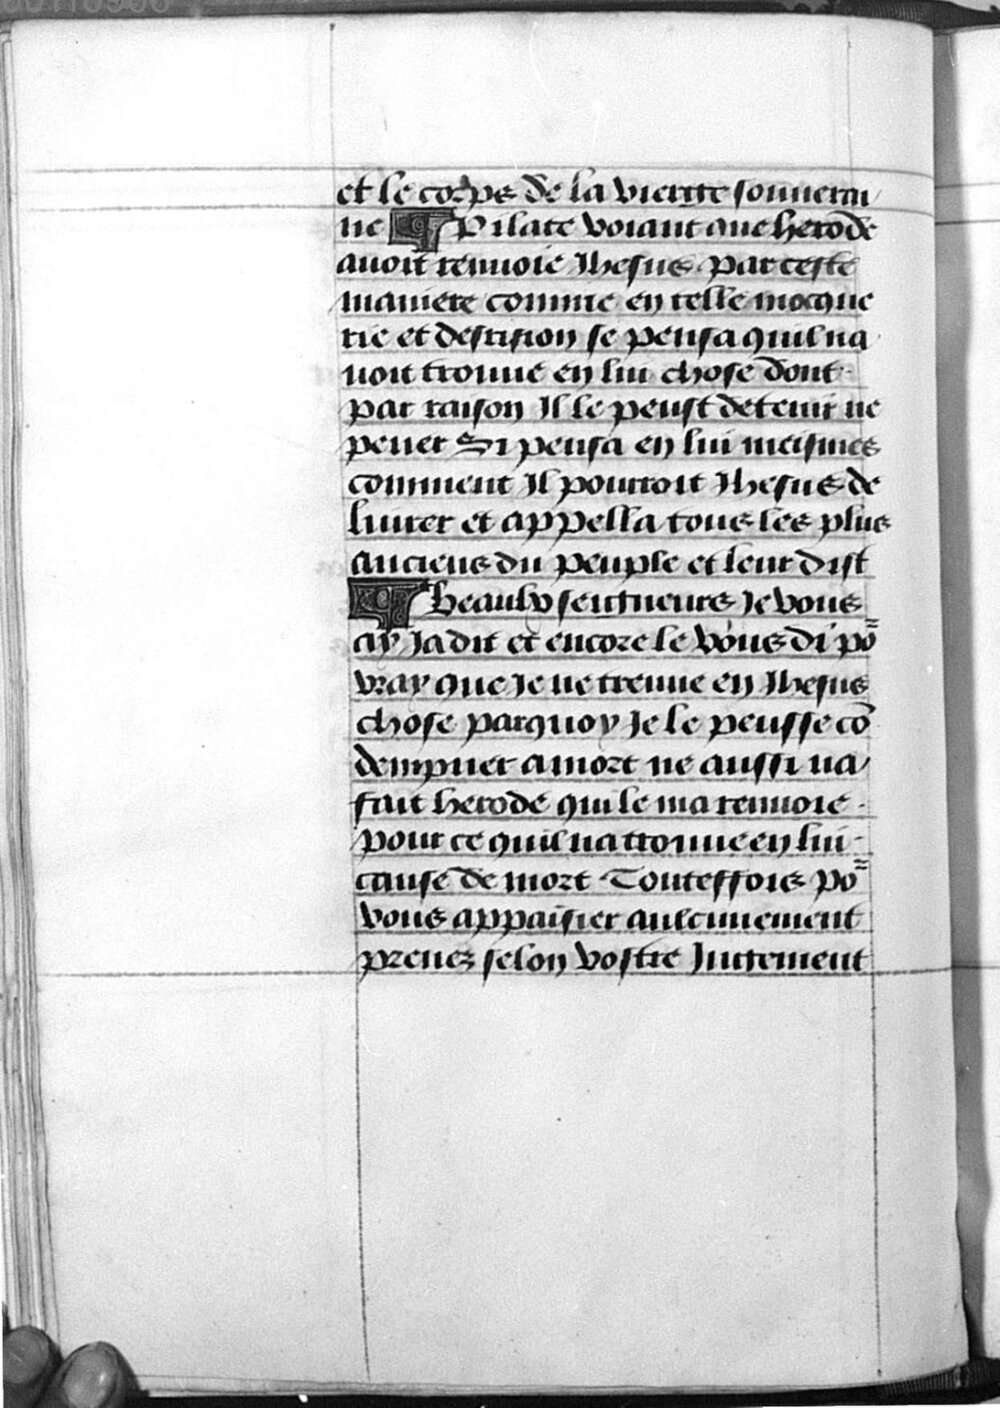 et le corps de la vierge souuerai
ne ¶ Pilate voiant que herode
auoit renuoie Jhesus par ceste
maniere comme en telle mocque
rie et desrision se pensa quil na
uoit trouue en lui chose dont
par raison Il le peust detenir ne
pener Si pensa en lui meismes
comment Il pourroit Jhesus de
liurer et appella tous les plus
anciens du peuple et leur dist
¶ beaulx seigneurs Je vous
ay Ja dit et encore le vous di pō
vray que Je ne treuue en Jhesus
chose parquoy Je le peusse cō
dempner a mort ne aussi na
fait herode qui le ma renuoie
pour ce quil na trouue en lui
cause de mort Touteffois pō
vous appaisier aulcunement
prenez selon vostre Jugement